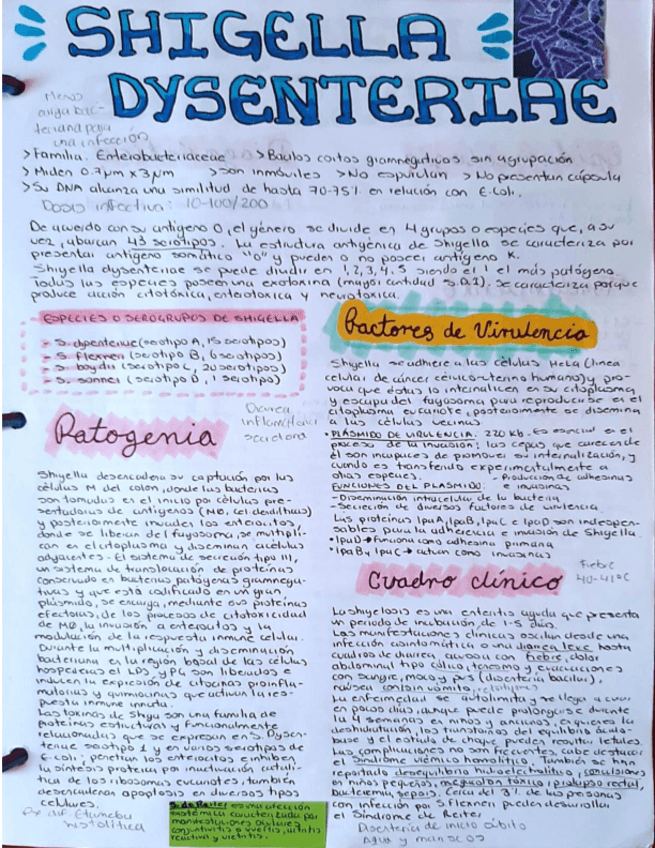 SHIGELLA
DYSENTERIAE
Menos
una infección
> Familia: Enterobacteriaceae > Bacilos cortos gramnegativos sin agrupación
> Miden 0.7μm x 3μm > Son inmóviles > No esporulan > No presentan cápsula
> Su DNA alcanza una similitud de hasta 70-75% en relación con E. Coli.
Dosis infectiva: 10-100/200
De acuerdo con su antígeno O, el género se divide en 4 grupos o especies que, a su
vez, abarcan 43 serotipos. La estructura antigénica de Shigella se caracteriza por
presentar antígeno somático "O" y pueden o no poseer antígeno K.
Shigella dysenteriae se puede dividir en 1,2,3,4,5 siendo el 1 el más patógeno
Todas las especies poseen una exotoxina (mayor cantidad S.D.1). Se caracteriza porque
produce acción citotóxica, enterotóxica y neurotóxica.
ESPECIES O SEROGRUPOS DE SHIGELLA
S. dysenteriae (serotipo A, 15 serotipos)
S. flexneri (serotipo B, 6 serotipos)
S. boydii (serotipo C, 20 serotipos)
S. sonnei (serotipo D, 1 serotipo)
Diarrea
inflamatoria
secretora
Patogenia
Shigella desencadena su captación por las
células M del colon, donde las bacterias
son tomadas en el inicio por células pre-
sentadoras de antígenos (MØ, cel. dendríticas)
y posteriormente invaden los enterocitos,
donde se liberan del fagosoma, se multipli-
can en el citoplasma y diseminan a células
adyacentes. El sistema de secreción tipo III,
un sistema de translocación de proteínas
conservado en bacterias patógenas gramnega-
tivas y que está codificado en un gran
plásmido, se encarga, mediante sus proteínas
efectoras, de los procesos de citotoxicidad
de MØ, la invasión a enterocitos y la
modulación de la respuesta inmune celular.
Durante la multiplicación y diseminación
bacteriana en la región basal de las células
hospederas el LPS y PG son liberados e
inducen la expresión de citocinas proinfla-
matorias y quimiocinas que activan la res-
puesta inmune innata.
Las toxinas de Shiga son una familia de
proteínas estructural y funcionalmente
relacionadas que se expresan en S. Dysen-
teriae serotipo 1 y en varios serotipos de
E. coli; penetran los enterocitos e inhiben
la síntesis proteica por inactivación catalí-
tica de los ribosomas eucariotas y también
desencadenan apoptosis en diversos tipos
celulares.
Dx dif. Etamebu
histolítica
S. de Reiter es una afección
sistémica caracterizada por
manifestaciones oculares
conjuntivitis o uveítis, artritis
reactiva y uretritis.
Factores de Virulencia
Shigella se adhiere a las células HeLa (línea
celular de cáncer cervicouterino humano) y pro-
voca que éstas lo internalicen en su citoplasma
y escapa del fagosoma para reproducirse en el
citoplasma eucarionte, posteriormente se disemina
a las células vecinas.
• PLÁSMIDO DE VIRULENCIA: 220 kb. Es esencial en el
proceso de la invasión; las cepas que carecen de
él son incapaces de promover su internalización, y
cuando es transferido experimentalmente a
otras especies. - Producción de adhesinas
FUNCIONES DEL PLÁSMIDO: invasinas
- Diseminación intracelular de la bacteria
- Secreción de diversos factores de virulencia.
Las proteínas IpaA, IpaB, IpaC e IpaD son indispen-
sables para la adherencia e invasión de Shigella.
• IpaD → funciona como adhesina primaria
• IpaB y IpaC → actúan como invasinas
Cuadro clínico
Fiebre
40-41°C
La shigelosis es una enteritis aguda que presenta
un periodo de incubación de 1-5 días.
Las manifestaciones clínicas oscilan desde una
infección asintomática o una diarrea leve hasta
cuadros de diarrea acuosa con fiebre, dolor
abdominal tipo cólico, tenesmo y evacuaciones
con sangre, moco y pus (disentería bacilar).
náusea con/sin vómito,
La enfermedad se autolimita y se llega a curar
en pocos días aunque puede prolongarse durante
la 4 semanas en niños y ancianos, en quienes la
deshidratación, los transtornos del equilibrio ácido
base y el estado de choque pueden resultar letales.
Las complicaciones no son frecuentes, cabe destacar
el Síndrome urémico hemolítico. También se han
reportado desequilibrio hidroelectrolítico, convulsiones
en niños pequeños, megacolon tóxico, prolapso rectal,
bacteremia, sepsis. Cerca del 3% de las personas
con infección por S flexneri pueden desarrollar
el Síndrome de Reiter
Disentería de inicio súbito
Agua y manos